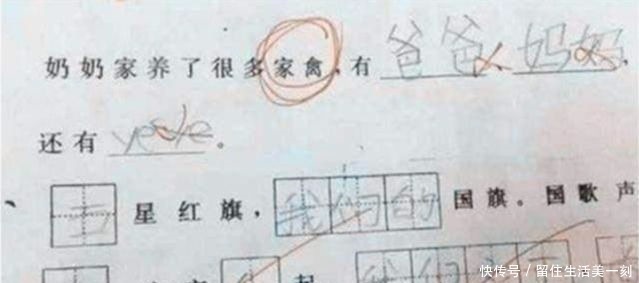 奶奶家养了很多家禽,有爸爸、妈妈,
还有yeye。
五星红旗,我们的国旗。国歌声
起我们
快传号/留住生活美一刻